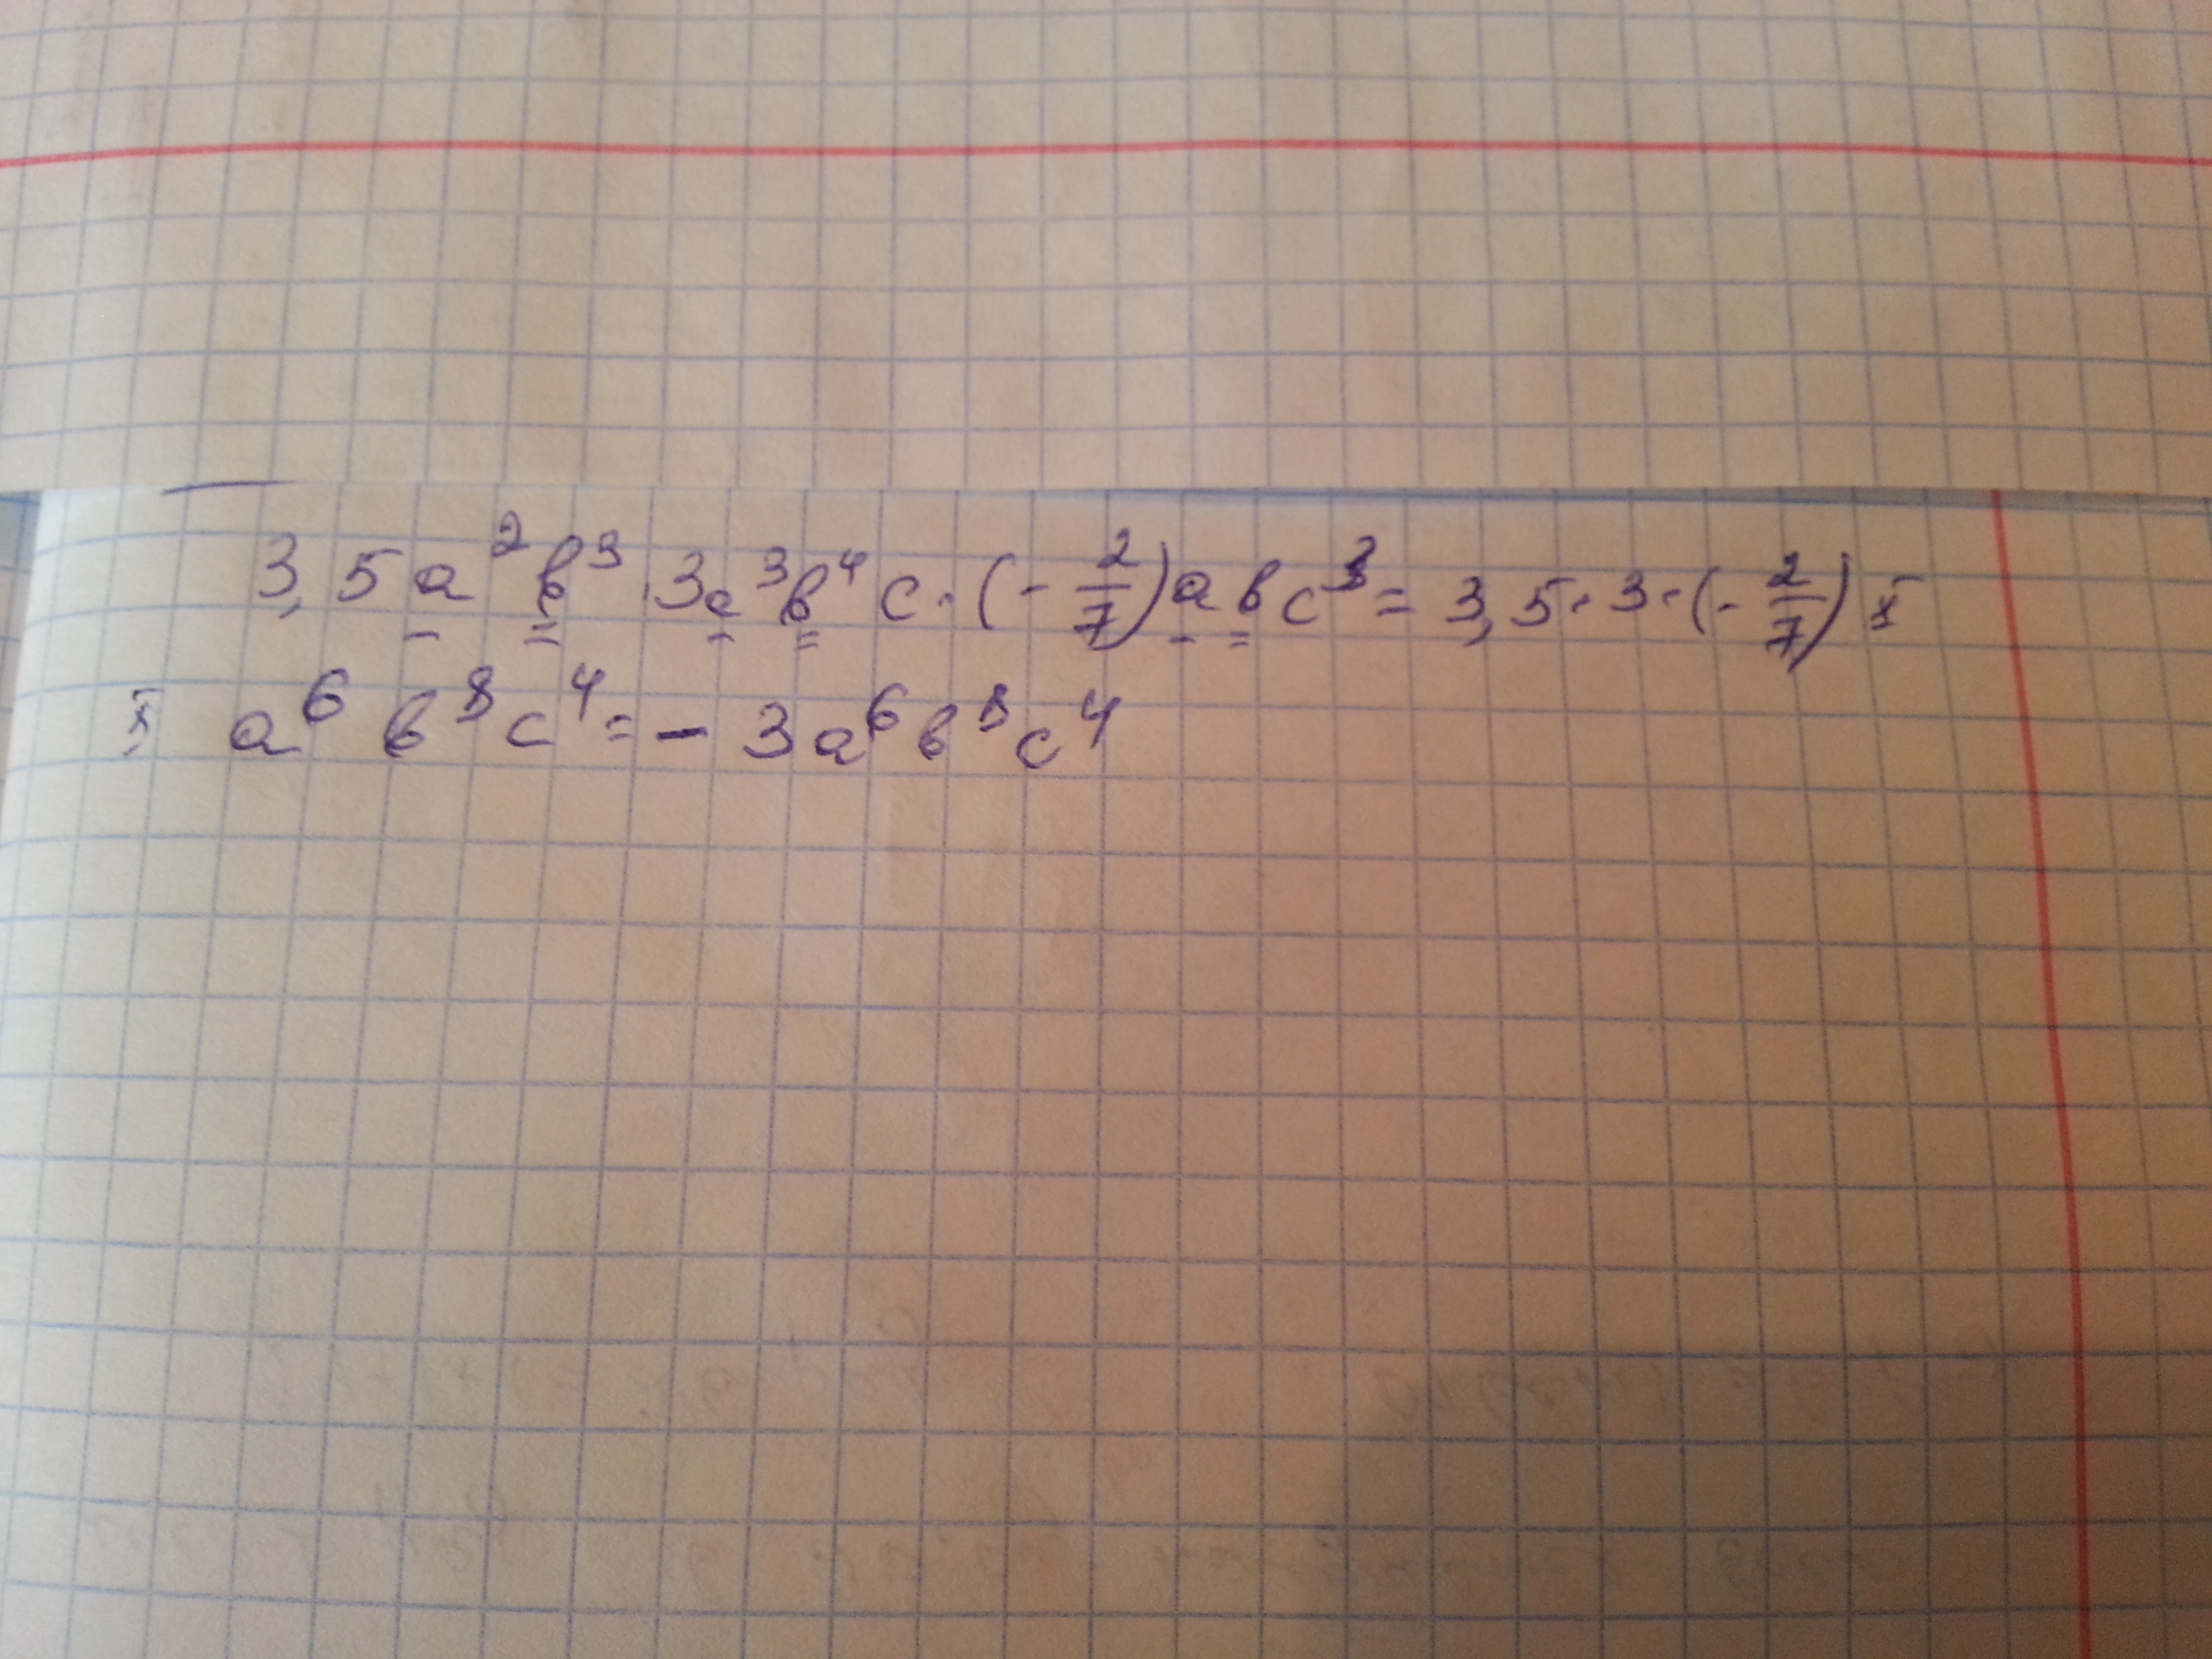 3,5a²b³ · 3a³b⁴c · (-2/7)abc³ = 3,5 · 3 · (-2/7) ×
× a⁶b⁸c⁴ = -3a⁶b⁸c⁴